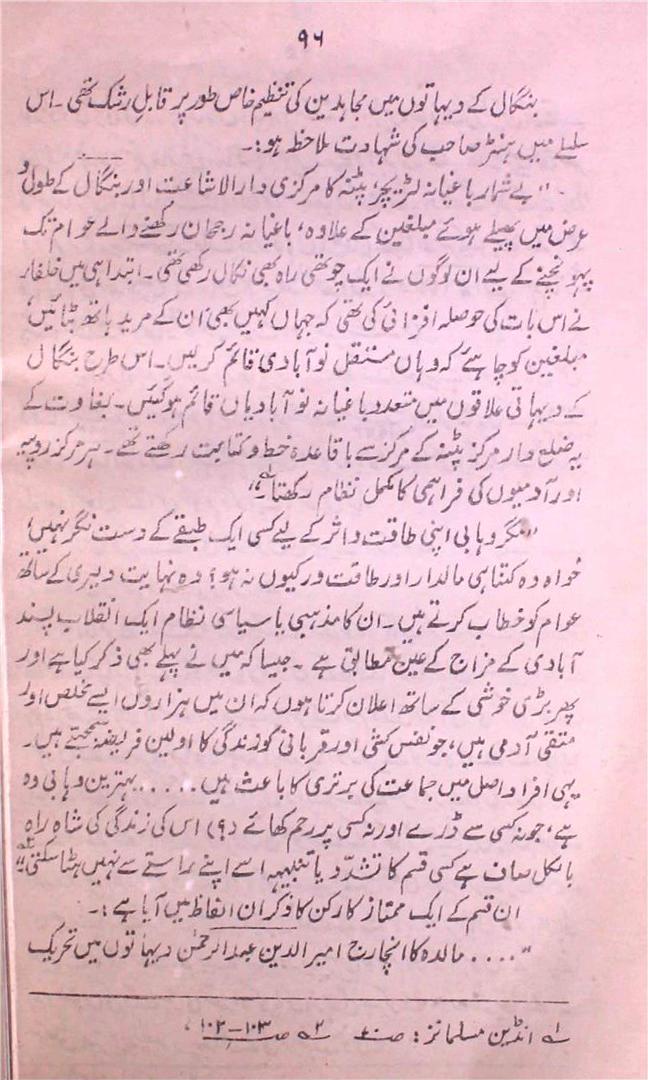 ۹۶
بنگال کے دیہاتوں میں مجاہدین کی تنظیم خاص طور پر قابلِ رشک تھی ۔ اس
سلسلے میں ہنٹر صاحب کی شہادت ملاحظہ ہو :۔
"بے شمار باغیانہ لٹریچر، پٹنہ کا مرکزی دار الاشاعت اور بنگال کے طول و
عرض میں پھیلے ہوئے مبلغین کے علاوہ، باغیانہ رجحان رکھنے والے عوام تک
پہونچنے کے لیے ان لوگوں نے ایک چوتھی راہ بھی نکال رکھی تھی ۔ ابتدا ہی میں خلفاء
نے اس بات کی حوصلہ افزائی کی تھی کہ جہاں کہیں بھی ان کے مرید ہاتھ بٹائیں،
مبلغین کو چاہئے کہ وہاں مستقل نو آبادی قائم کر لیں۔ اس طرح بنگال
کے دیہاتی علاقوں میں متعدد باغیانہ نو آبادیاں قائم ہو گئیں۔ بغاوت کے
یہ ضلع دار مرکز پٹنہ کے مرکز سے باقاعدہ خط و کتابت رکھتے تھے ۔ ہر مرکز روپیہ
اور آدمیوں کی فراہمی کا مکمل نظام رکھتا۔"۱؎
"مگر وہابی اپنی طاقت و اثر کے لیے کسی ایک طبقے کے دست نگر نہیں،
خواہ وہ کتنا ہی مالدار اور طاقت ور کیوں نہ ہو؟ وہ نہایت دلیری کے ساتھ
عوام کو خطاب کرتے ہیں۔ ان کا مذہبی یا سیاسی نظام ایک انقلاب پسند
آبادی کے مزاج کے عین مطابق ہے ۔ جیسا کہ میں نے پہلے بھی ذکر کیا ہے اور
پھر بڑی خوشی کے ساتھ اعلان کرتا ہوں کہ ان میں ہزاروں ایسے مخلص اور
متقی آدمی ہیں، جو نفس کشی اور قربانی کو زندگی کا اولین فریضہ سمجھتے ہیں۔
یہی افراد اصل میں جماعت کی برتری کا باعث ہیں ..... بہترین وہابی وہ
ہے، جو نہ کسی سے ڈرے اور نہ کسی پر رحم کھائے (؟) اس کی زندگی کی شاہ راہ
بالکل صاف ہے کسی قسم کا تشدّد یا تنبیہہ اسے اپنے راستے سے نہیں ہٹا سکتی۔"۲؎
ان قسم کے ایک ممتاز کارکن کا ذکر ان الفاظ میں آیا ہے :۔
".... مالدہ کا انچارج امیر الدین عبدالرحمٰن دیہاتوں میں تحریک
۱؎ انڈین مسلمانز: ص ۲؎ ص ۱۰۳-۱۰۲،